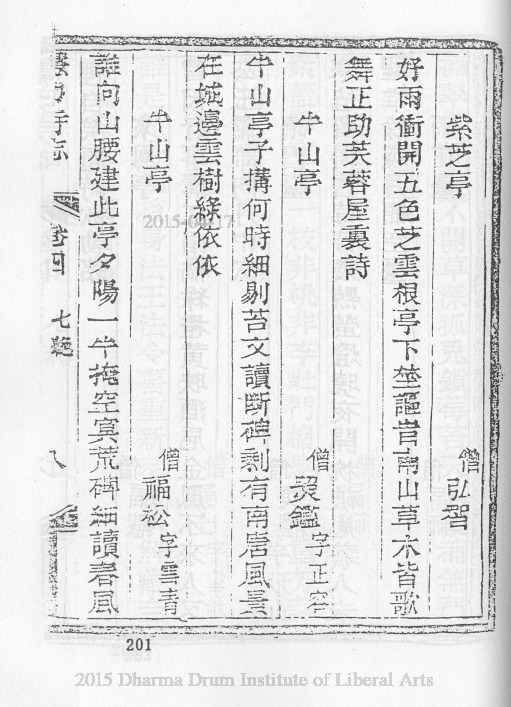 紫芝亭
僧弘智
好雨衝開五色芝雲根亭下坐謳岩南山草木皆歌
舞正助芙蓉屋裏詩
半山亭
僧 鑑字正容
半山亭子搆何時細剔苔文讀斷碑剩有南唐風景
在城邊雲樹綠依依
半山亭
僧福松字雲青
誰向山腰建此亭夕陽一半掩空冥荒碑細讀春風
寺志
卷四
七絕
八
201
2015 Dharma Drum Institute of Liberal Arts